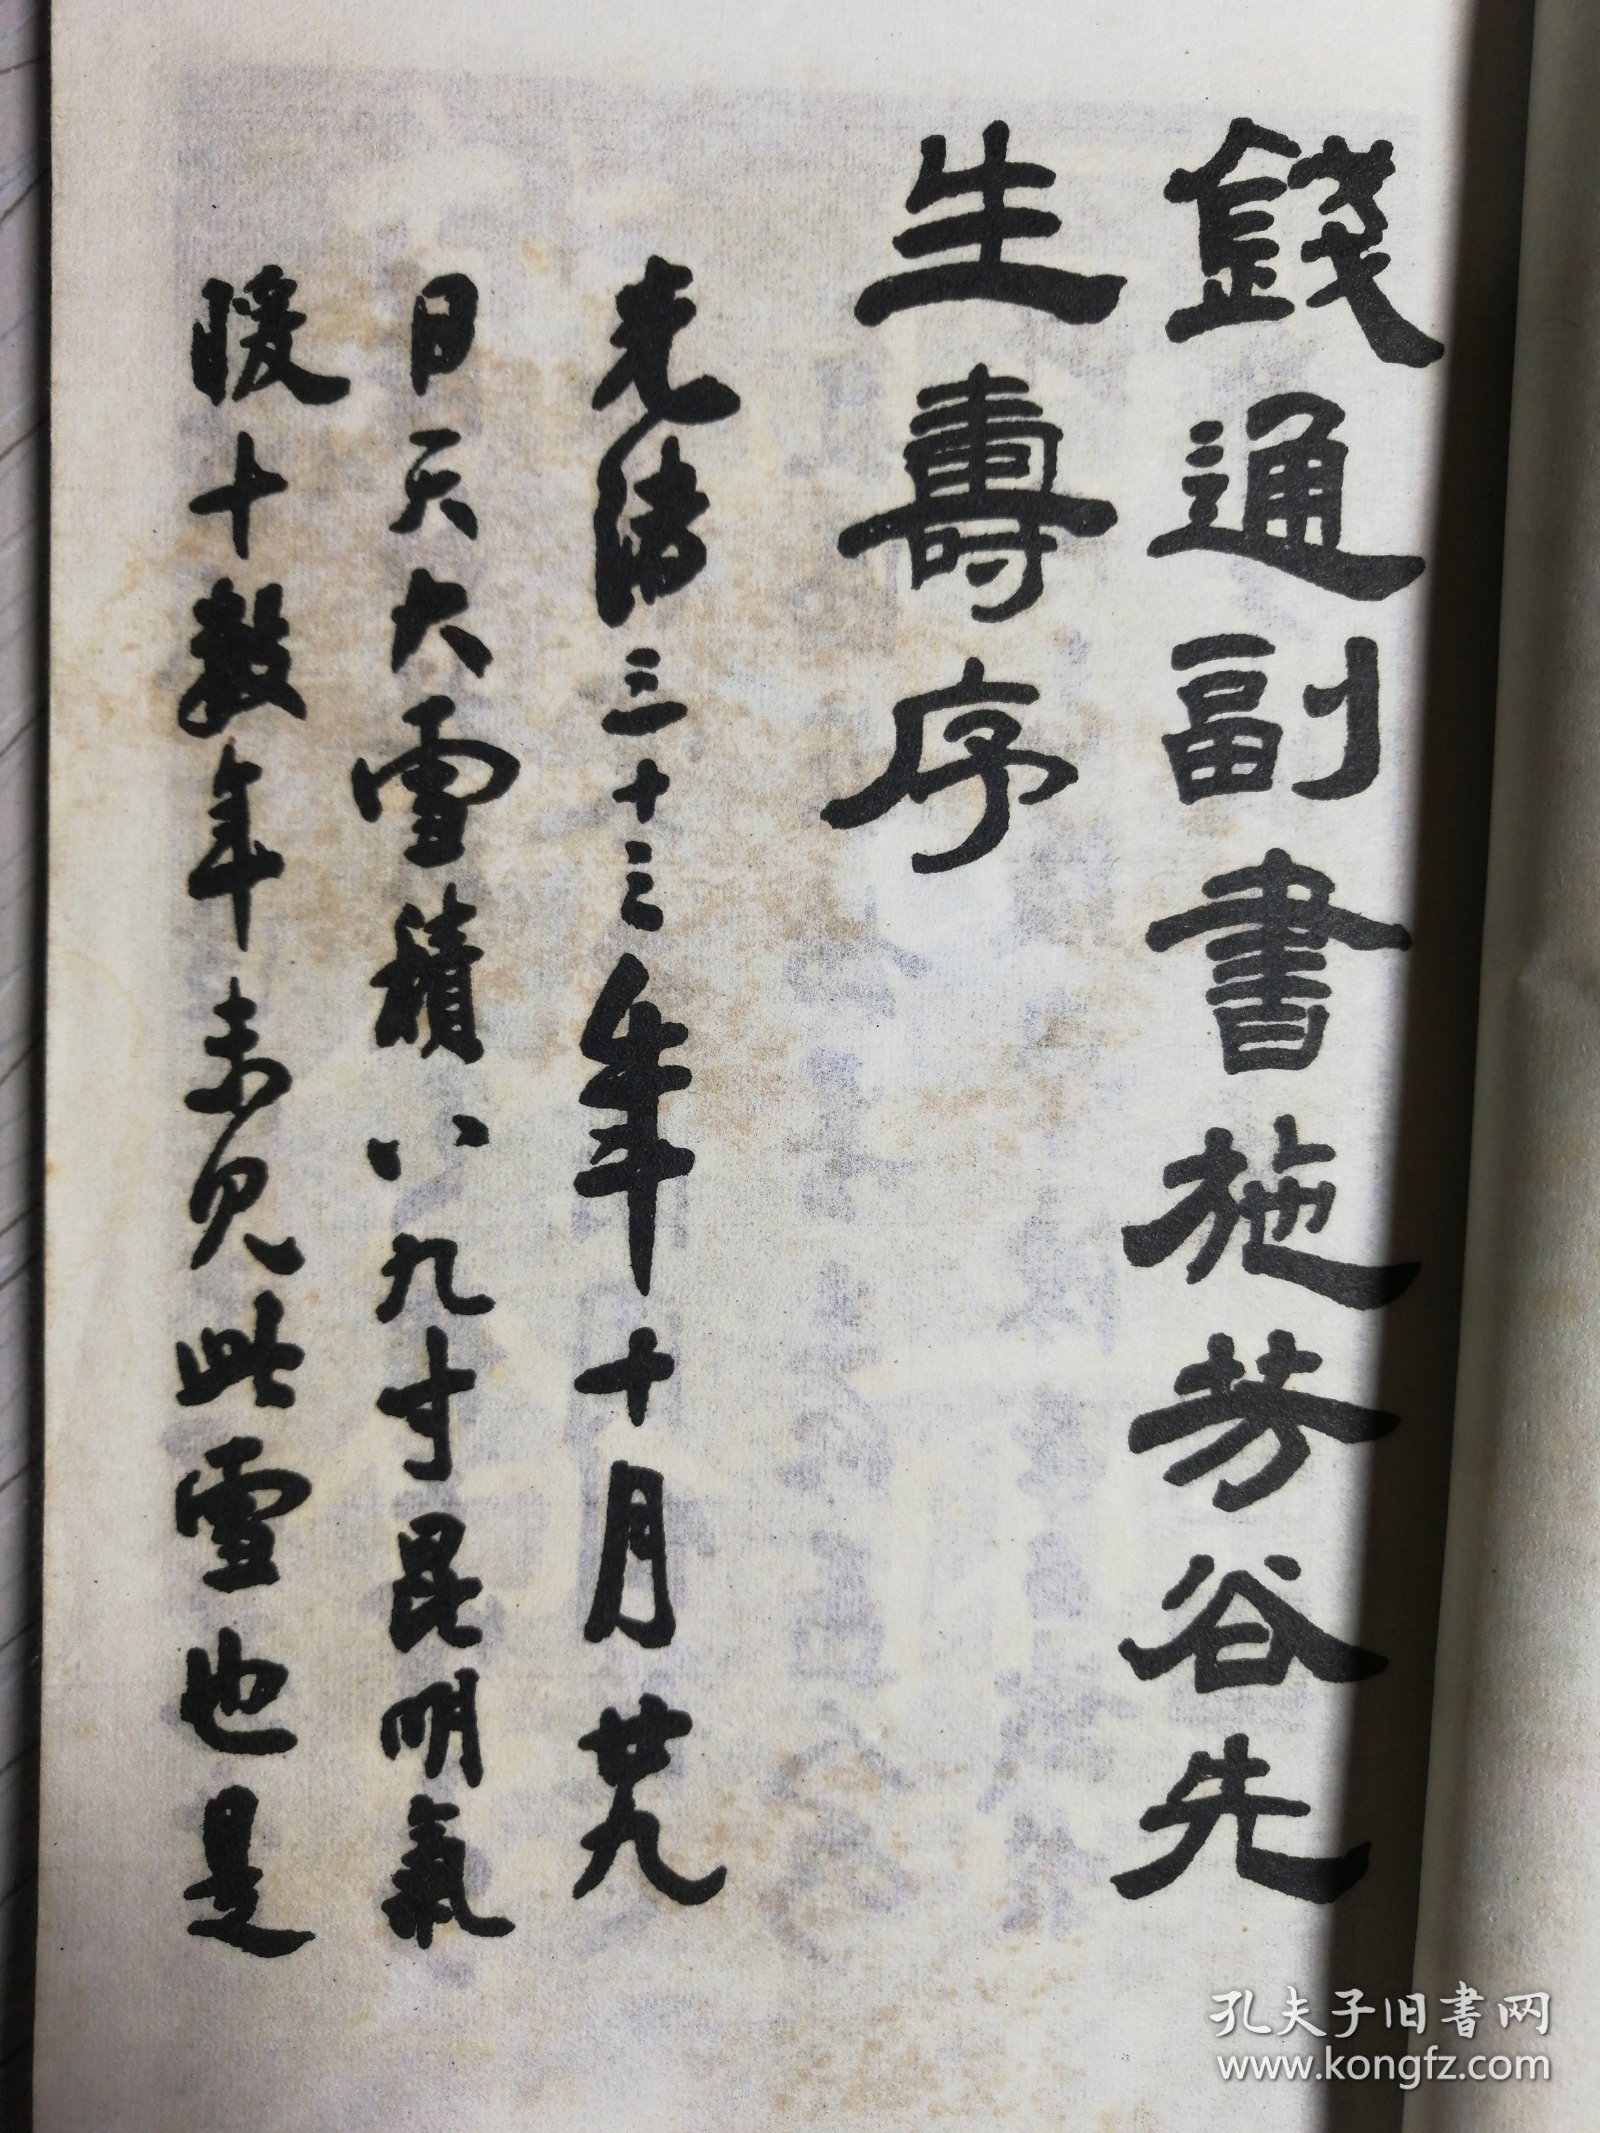 錢通副書施芳谷先
生壽序
光緒三十三年十月廿九
日天大雪積八九寸昆明氣
暖十數年未見此雪也是
孔夫子旧書网
www.kongfz.com